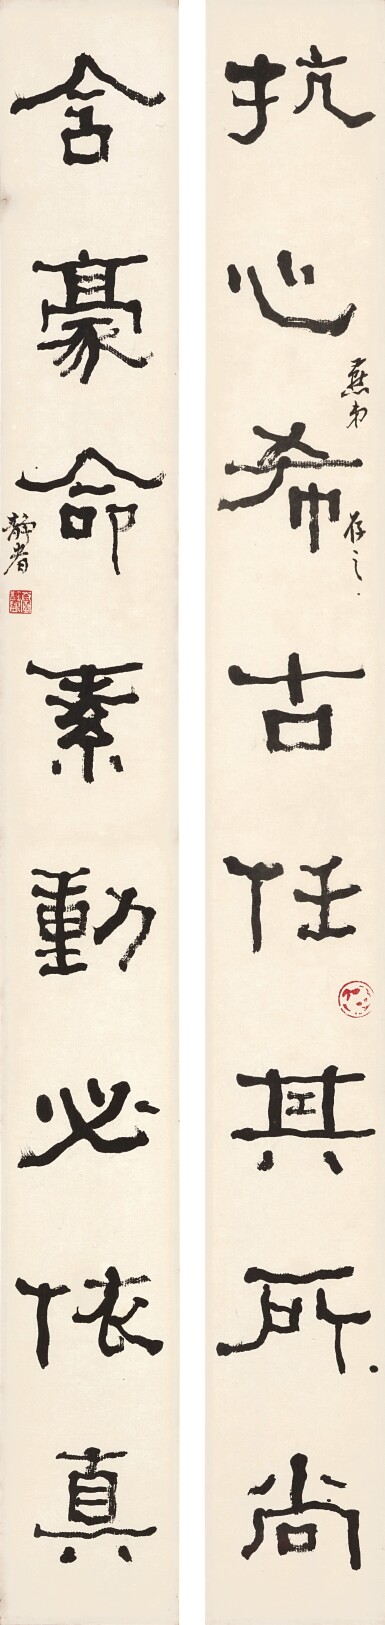 抗心希古任其所尚
燕弟存之
含豪命素動必依真
靜者